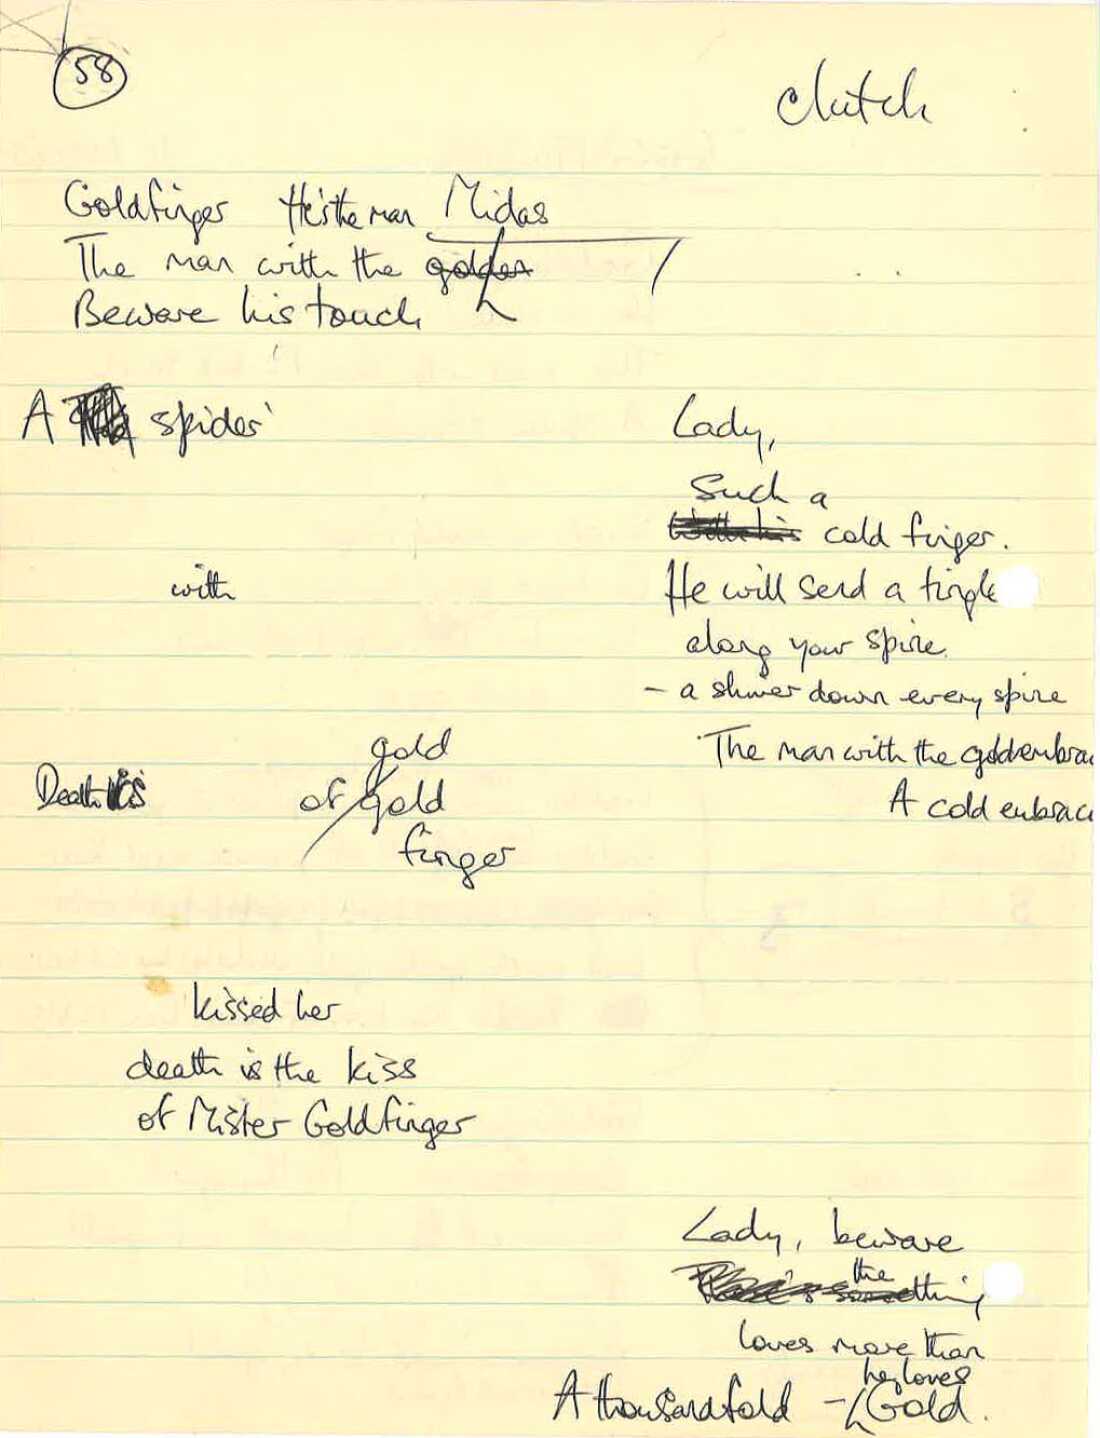 58
clutch
Goldfinger He's the man Midas
The man with the golden
Beware his touch
A spider's
Lady,
Such a
With his cold finger.
with
He will send a tingle
along your spine.
- a shiver down every spine
gold
The man with the gold embrac
Death is of gold
A cold embrac
finger
kissed her
death is the kiss
of Mister Goldfinger
Lady, beware
the
something
loves more than
he loves
A thousandfold - Gold.